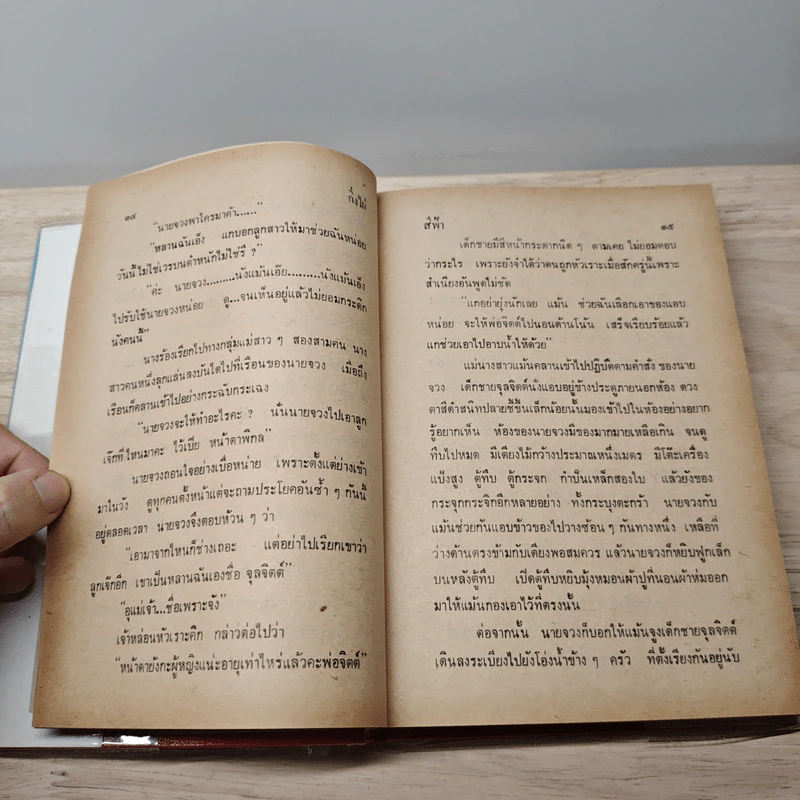 ๑๔ กิ่งไผ่
"นายจวงพาใครมาค้า......"
"หลานฉันเอ็ง แกบอกลูกสาวให้มาช่วยฉันหน่อย
วันนี้ไม่ใช่เวรบนตำหนักไม่ใช่รึ ?"
"ค่ะ นายจวง........นังแม้นเอ๊ย.........นังแม้นเอ็ง
ไปรับใช้นายจวงหน่อย ดู...จนเห็นอยู่แล้วไม่ยอมกระดิก
นังคนนี้"
นางร้องเรียกไปทางกลุ่มแม่สาว ๆ สองสามคน นาง
สาวคนหนึ่งลุกแล่นลงบันไดไปที่เรือนของนายจวง เมื่อถึง
เรือนก็คลานเข้าไปอย่างกระฉับกระเฉง
"นายจวงจะให้ทำอะไรคะ ? นั่นนายจวงไปเอาลูก
เจ๊กที่ไหนมาคะ ไว้เปีย หน้าตาพิกล"
นายจวงถอนใจอย่างเบื่อหน่าย เพราะตั้งแต่ย่างเข้า
มาในวัง ดูทุกคนตั้งหน้าแต่จะถามประโยคอันซ้ำ ๆ กันนี้
อยู่ตลอดเวลา นายจวงจึงตอบห้วน ๆ ว่า
"เอามาจากไหนก็ช่างเถอะ แต่อย่าไปเรียกเขาว่า
ลูกเจ๊กอีก เขาเป็นหลานฉันเองชื่อ จุลจิตต์"
"อุแม่เจ้า...ชื่อเพราะจัง"
เจ้าหล่อนหัวเราะคิก กล่าวต่อไปว่า
"หน้าตายังกะผู้หญิงแน่ะอายุเท่าไหร่แล้วคะพ่อจิตต์"
สีฟ้า ๑๕
เด็กชายมีสีหน้ากระดากนิด ๆ ตามเคย ไม่ยอมตอบ
ว่ากระไร เพราะยังจำได้ว่าตนถูกหัวเราะเมื่อสักครู่นี้เพราะ
สำเนียงอันพูดไม่ชัด
"แกอย่ายุ่งนักเลย แม้น ช่วยฉันเลือกเอาของแอบ
หน่อย จะให้พ่อจิตต์ไปนอนด้านโน้น เสร็จเรียบร้อยแล้ว
แกช่วยเอาไปอาบน้ำให้ด้วย"
แม่นางสาวแม้นคลานเข้าไปปฏิบัติตามคำสั่ง ของนาย
จวง เด็กชายจุลจิตต์นั่งแอบอยู่ข้างประตูภายนอกห้อง ดวง
ตาสีดำสนิทปลายชี้ขึ้นเล็กน้อยนั้นมองเข้าไปในห้องอย่างอยาก
รู้อยากเห็น ห้องของนายจวงมีของมากมายเหลือเกิน จนดู
ทึบไปหมด มีเตียงไม้กว้างประมาณหนึ่งเมตร มีโต๊ะเครื่อง
แป้งสูง ตู้ทึบ ตู้กระจก กำปั่นเหล็กสองใบ แล้วยังของ
กระจุกกระจิกอีกหลายอย่าง ทั้งกระบุงตะกร้า นายจวงกับ
แม้นช่วยกันแอบข้าวของไปวางซ้อน ๆ กันทางหนึ่ง เหลือที่
ว่างด้านตรงข้ามกับเตียงพอสมควร แล้วนายจวงก็หยิบฟูกเล็ก
บนหลังตู้ทึบ เปิดตู้ทึบหยิบมุ้งหมอนผ้าปูที่นอนผ้าห่มออก
มาให้แม้นกองเอาไว้ที่ตรงนั้น
ต่อจากนั้น นายจวงก็บอกให้แม้นจูงเด็กชายจุลจิตต์
เดินลงระเบียงไปยังโอ่งน้ำข้าง ๆ ครัว ที่ตั้งเรียงกันอยู่นับ